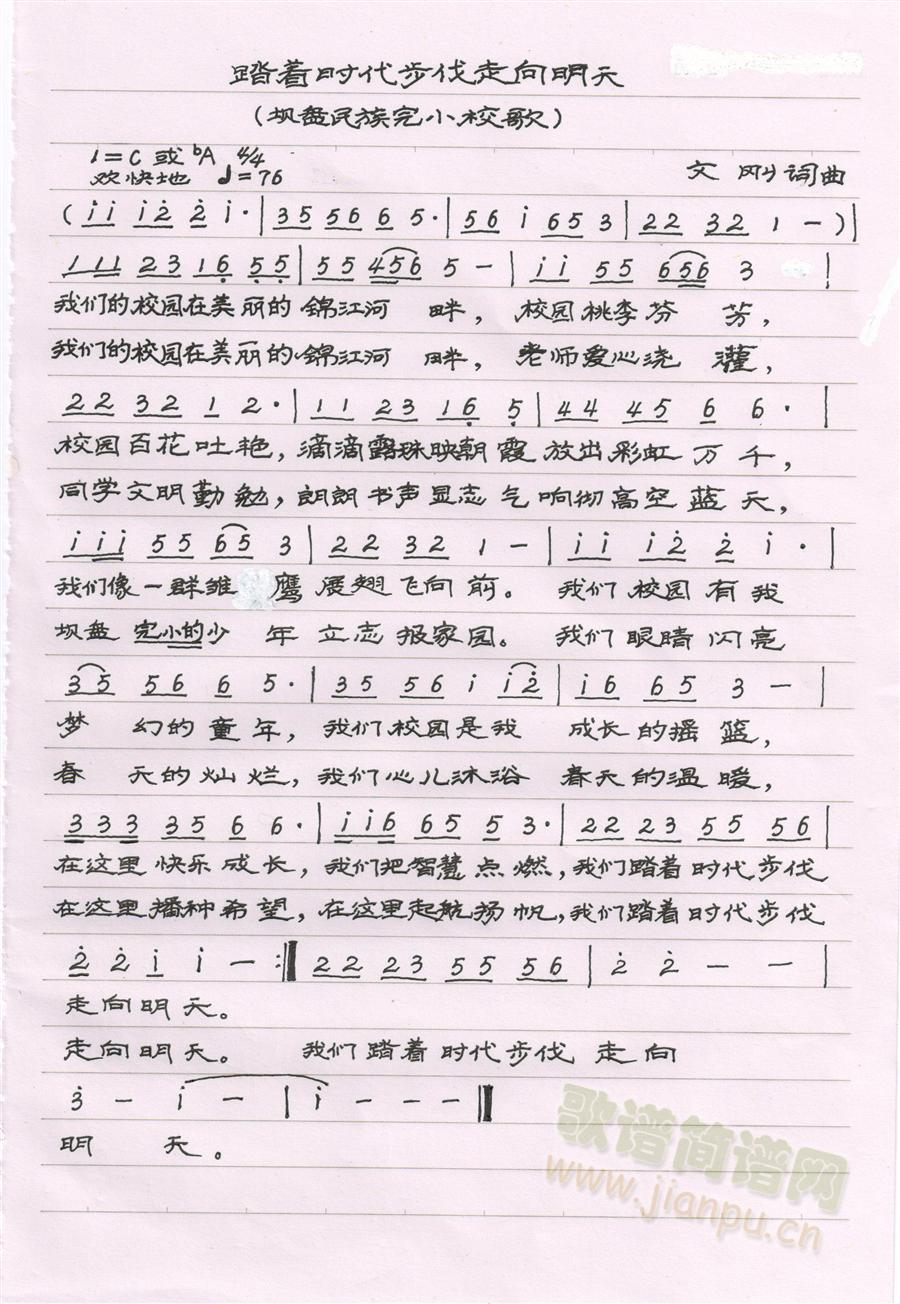 踏着时代步伐走向明天
(坝盘民族完小校歌)
1=C 或 ᵇA 4/4
欢快地 ♩=76
文 刚 词曲
(i̇i̇ i̇2̇ 2̇ i̇·|35 56 6 5·|56 i̇ 65 3|22 32 1 -)|
111 23 16̣ 5̣5̣|55 456 5 -|i̇i̇ 55 656 3 |
我们的校园在美丽的锦江河 畔, 校园桃李芬 芳,
我们的校园在美丽的锦江河 畔, 老师爱心浇 灌,
22 32 1 2·|11 23 16̣ 5̣|44 45 6 6·|
校园百花吐艳, 滴滴露珠映朝霞 放出彩虹万千,
同学文明勤勉, 朗朗书声显志气 响彻高空蓝天,
i̇i̇i̇ 55 65 3|22 32 1 -|i̇i̇ i̇2̇ 2̇ i̇·|
我们像一群雏 鹰 展翅飞向前。 我们校园有我
坝盘完小的少 年 立志报家园。 我们眼睛闪亮
35 56 6 5·|35 56 i̇ i̇2̇|i̇6 65 3 -|
梦 幻的童年, 我们校园是我 成长的摇篮,
春 天的灿烂, 我们心儿沐浴 春天的温暖,
333 35 6 6·|i̇i̇6 65 5 3·|22 23 55 56|
在这里快乐成长, 我们把智慧点燃, 我们踏着时代步伐
在这里播种希望, 在这里起航扬帆, 我们踏着时代步伐
2̇ 2̇ i̇ i̇ - :‖ 22 23 55 56|2̇ 2̇ - -|
走向明天。
走向明天。 我们踏着时代步伐 走向
3̇ - i̇ -|i̇ - - -‖
明 天。
歌谱简谱网
www.jianpu.cn